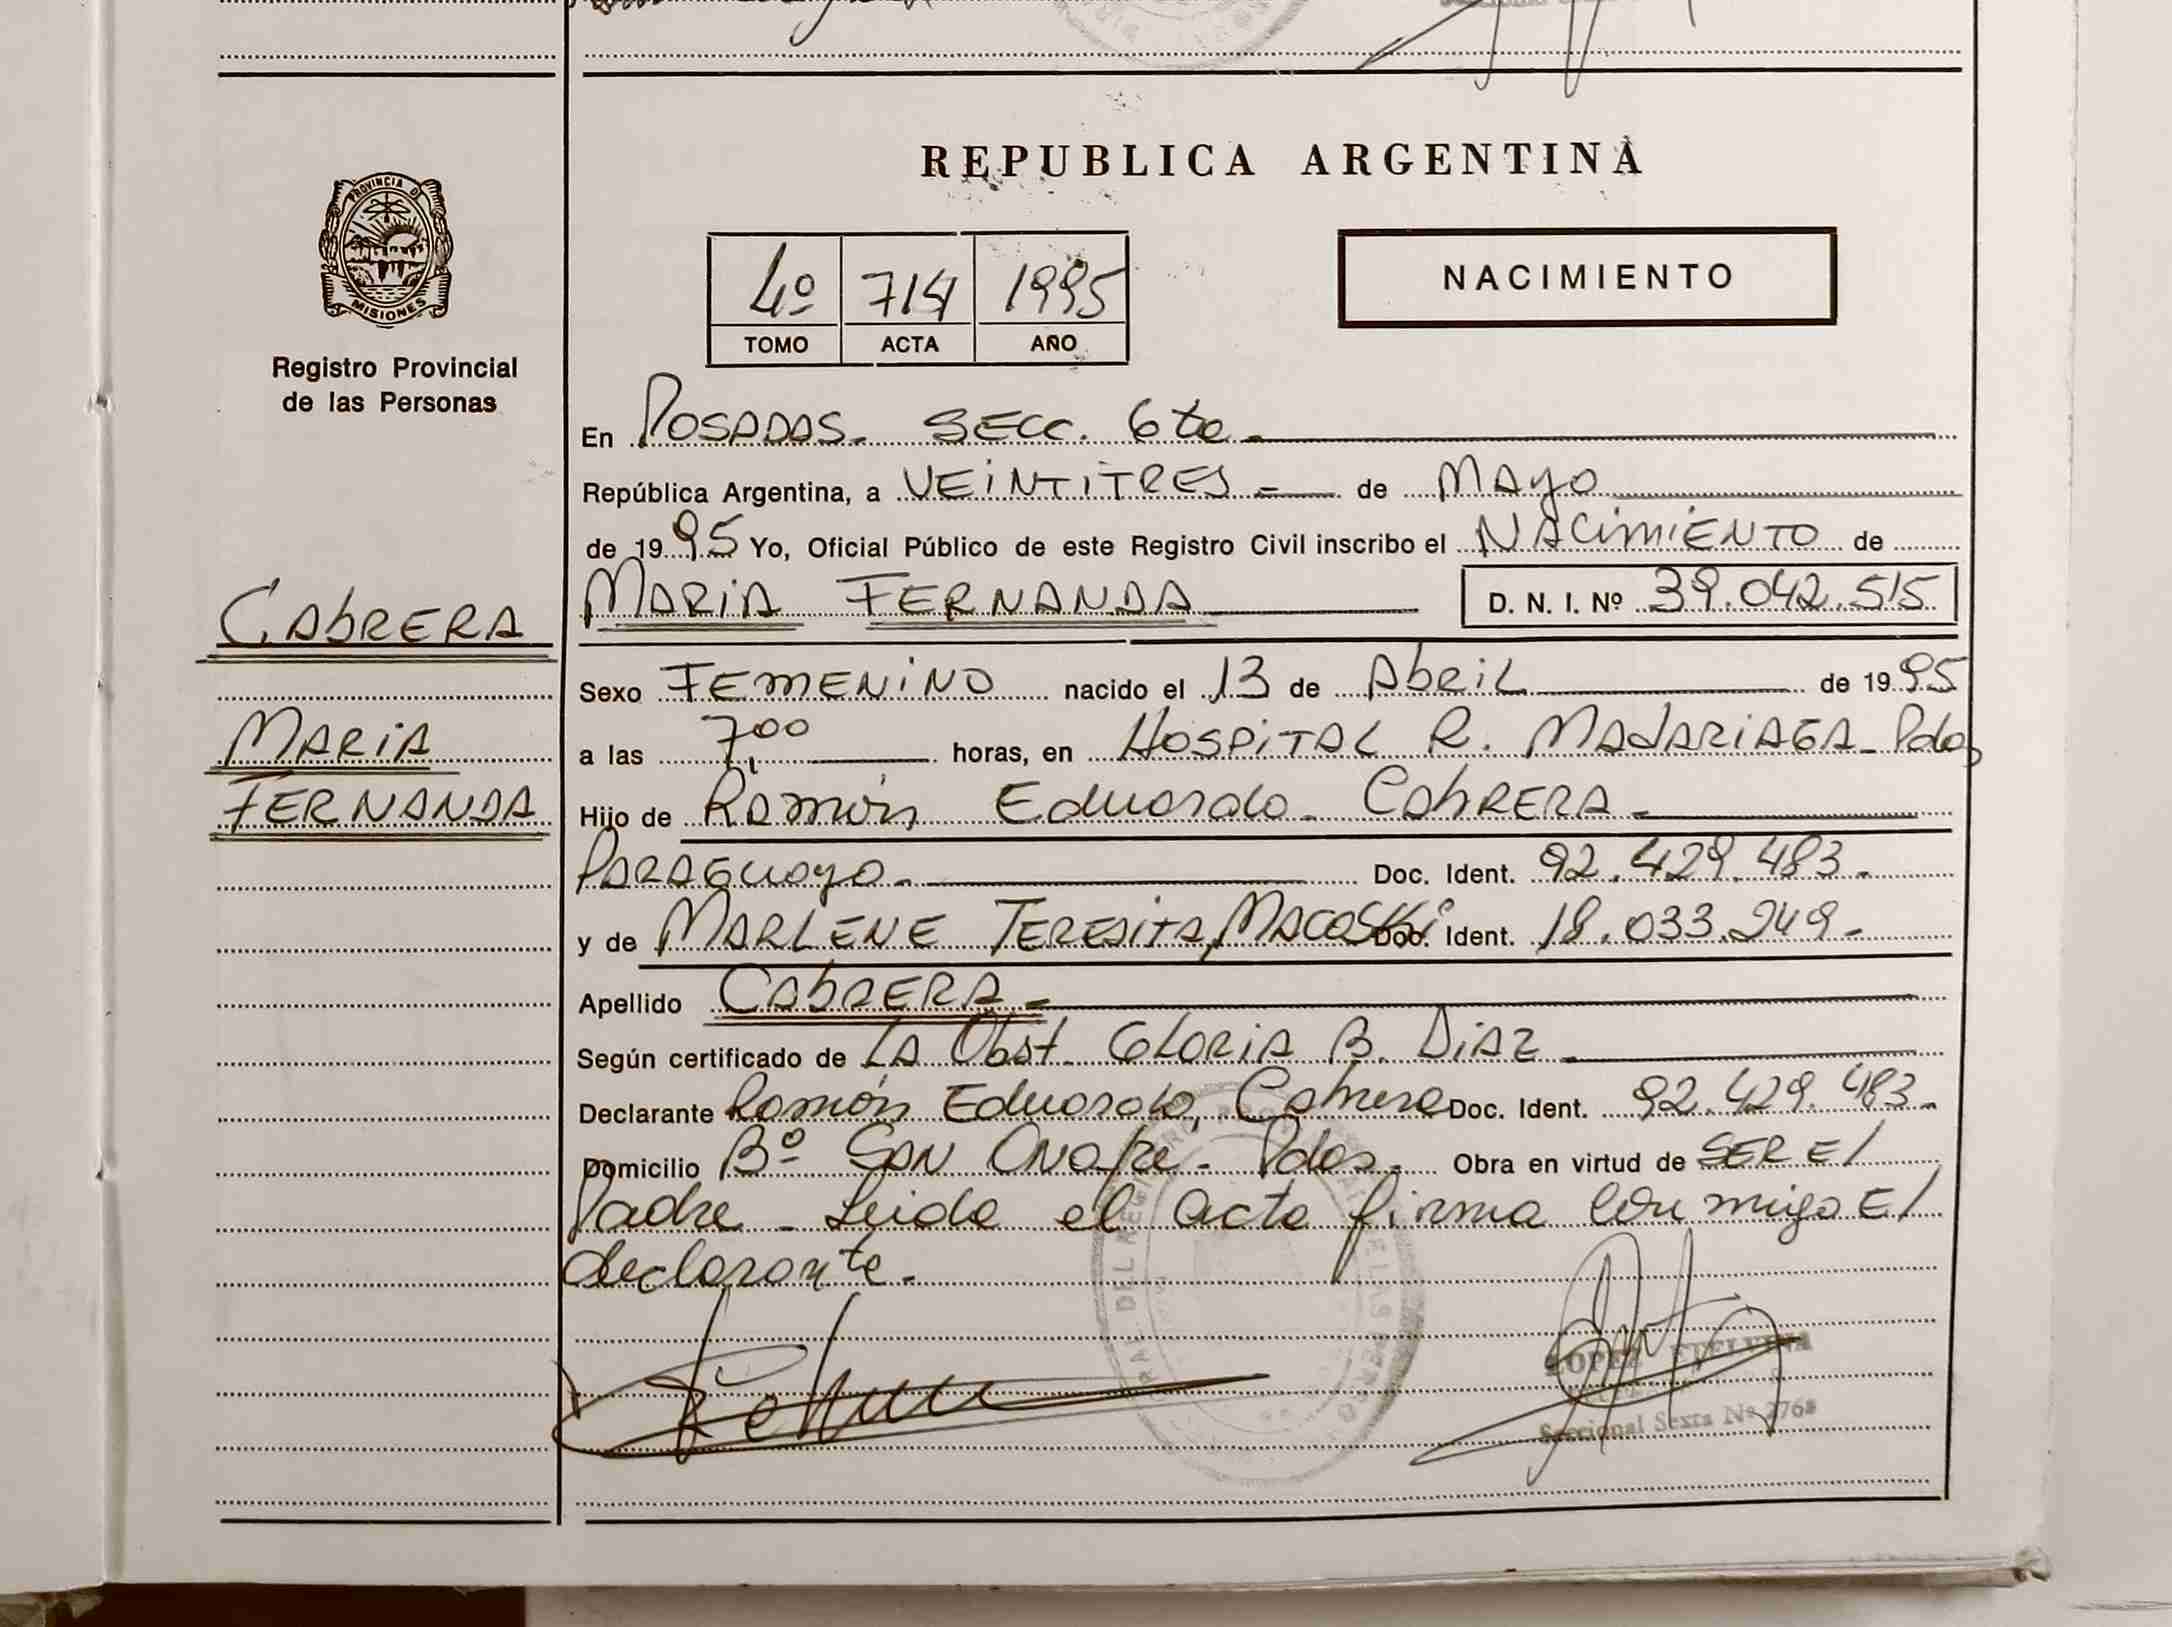 PROVINCIA DE
MISIONES
Registro Provincial
de las Personas
CABRERA
MARIA
FERNANDA
REPUBLICA ARGENTINA
4º 714 1995
TOMO ACTA AÑO
NACIMIENTO
En POSADAS. SECC. 6ta
República Argentina, a VEINTITRES de Mayo
de 1995 Yo, Oficial Público de este Registro Civil inscribo el NACIMIENTO de
MARIA FERNANDA D. N. I. Nº 39.042.515
Sexo FEMENINO nacido el 13 de Abril de 1995
a las 7,00 horas, en HOSPITAL R. MADARIAGA - Pdas
Hijo de Ramón Eduardo CABRERA
PARAGUAYO Doc. Ident. 92.429.483
y de MARLENE TERESITA, MACOSKI Doc. Ident. 18.033.249
Apellido CABRERA
Según certificado de LA Obst. GLORIA B. DIAZ
Declarante Ramón Eduardo, Cabrera Doc. Ident. 92.429.483
Domicilio Bº SAN Onofre - Pdas. Obra en virtud de SER El
Padre - Leida el acta firma conmigo El
declarante.
LOPEZ ETELVINA
Seccional Sexta Nº 2768